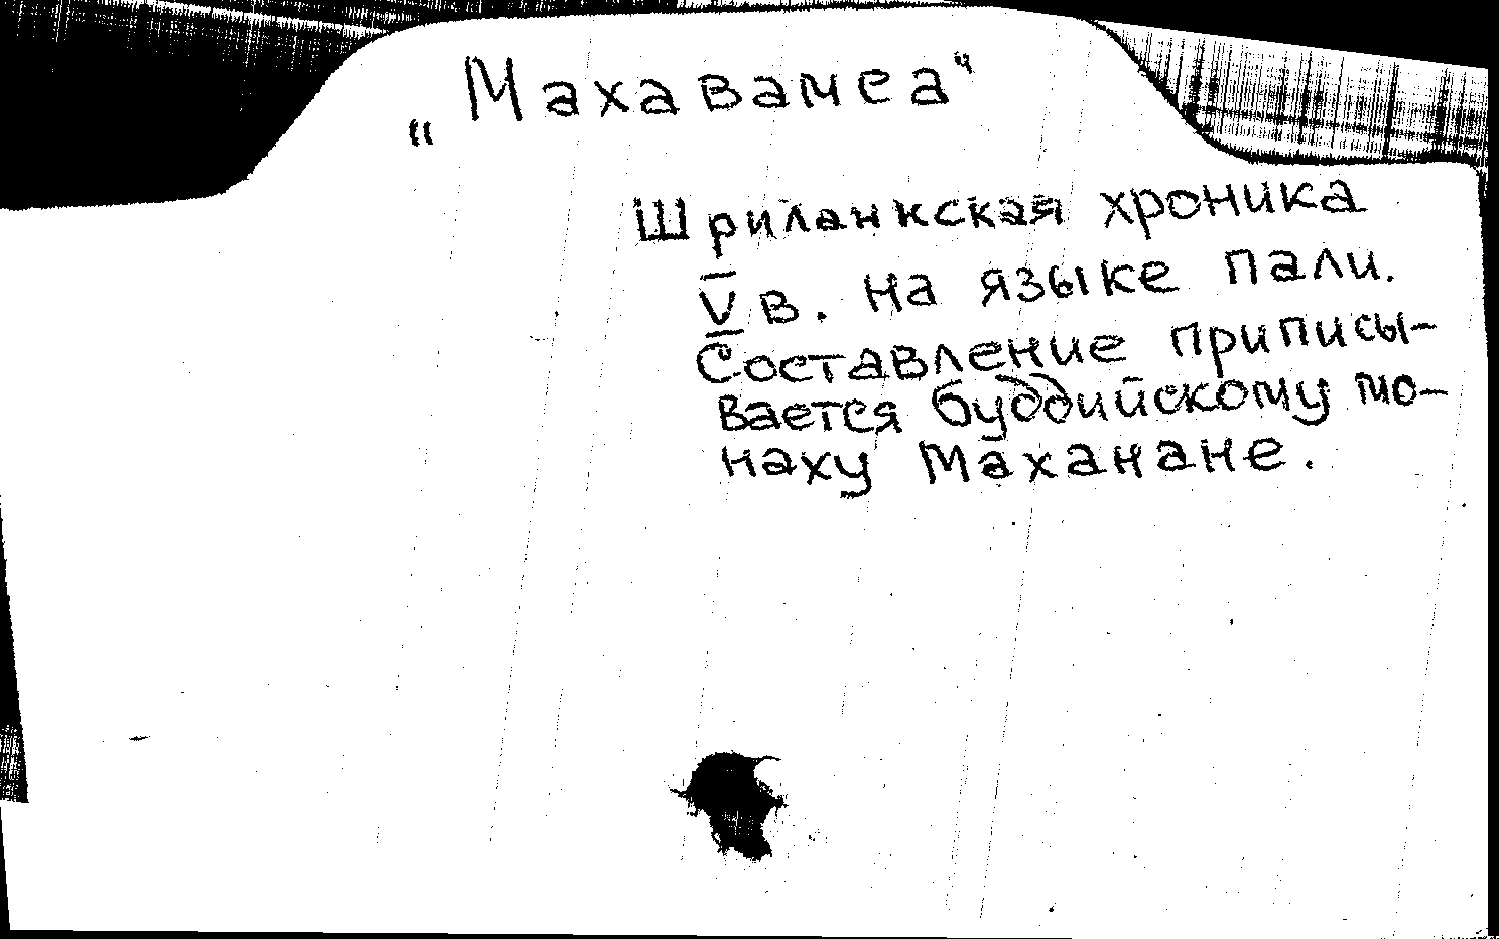 „Махавамса“
Шриланкская хроника
V в. на языке пали.
Составление приписы-
вается буддийскому мо-
наху Маханане.